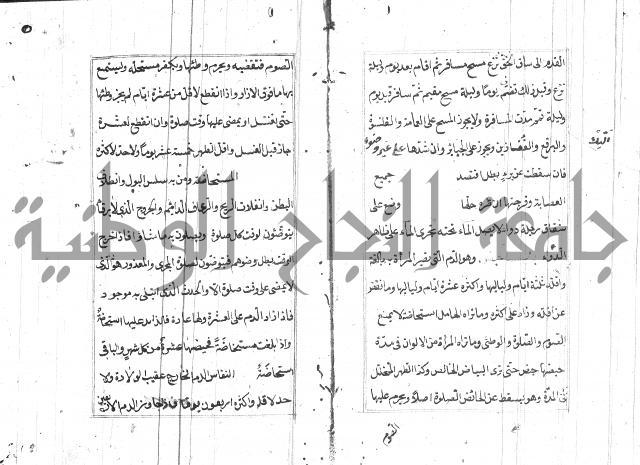 القدم الى ساق الخف نزع مسح مسافر ثم اقام بعد يوم وليلة
نزع وقبل ذلك تمم يوما وليلة مسح مقيم ثم سافر قبل يوم
وليلة تمم مدة المسافر ولا يجوز المسح على العمامة والقلنسوة
والبرقع والقفازين ويجوز على الجباير وان شدها على غير وضوء
فان سقطت عن برء بطل
العصابة
وهو الدم الذي تصير المرأة به بالغة
واقله ثلثة ايام ولياليها واكثره عشرة ايام ولياليها وما نقص
عن اقله وزاد على اكثره وما تراه الحامل استحاضة لا يمنع
الصوم والصلوة والوطئ وما تراه المرأة من الالوان في مدة
حيضها حيض حتى ترى البياض الخالص وكذا الطهر المتخلل
في المدة وهو يسقط عن الحائض الصلوة اصلا ويحرم عليها
الصوم
الصوم فتقضيه ويحرم وطئها ويكفر مستحله ويستمتع
بها ما فوق الازار واذا انقطع لاقل من عشرة ايام لم يجز وطئها
حتى تغتسل او يمضي عليها وقت صلوة وان انقطع لعشرة
جاز قبل الغسل واقل الطهر خمسة عشر يوما ولا حد لاكثره
المستحاضة ومن به سلس البول وانطلاق
البطن وانفلات الريح والرعاف الدائم والجروح الذي لا يرقأ
يتوضون لوقت كل صلوة ويصلون به ما شاؤا فاذا خرج
الوقت بطل وضوهم فيتوضون لصلوة اخرى والمعذور هو الذي
لا يمضي على وقت صلوة الا والحدث الذي ابتلى به موجود
فاذا زاد الدم على العشرة ولها عادة فالزايد عليها استحاضة
واذا بلغت مستحاضة فحيضها عشرة من كل شهر والباقي
استحاضة النفاس الدم الخارج عقيب الولادة ولا
حد لاقله واكثره اربعون يوما فاذا جاوز الدم الاربعين
جامعة النجاح الوطنية